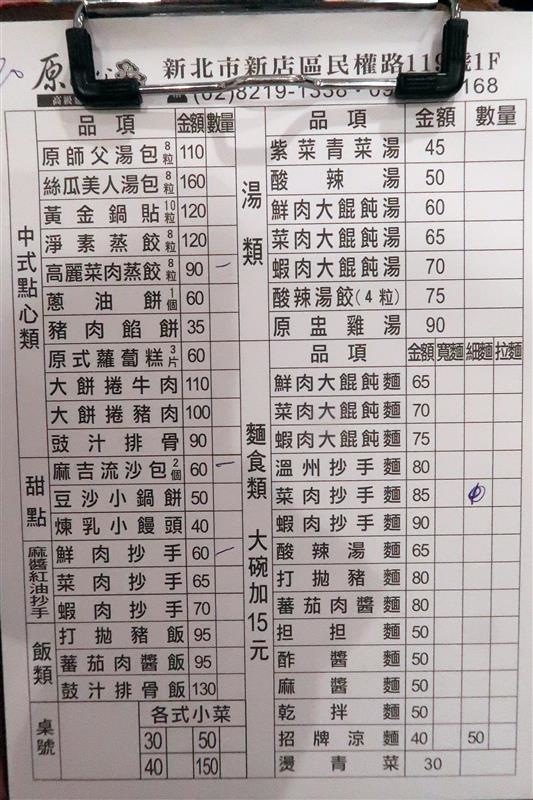 原
新北市新店區民權路119號1F
(02)8219-1338
168
品項 金額 數量
中式點心類
原師父湯包 8粒 110
絲瓜美人湯包 8粒 160
黃金鍋貼 10粒 120
淨素蒸餃 8粒 120
高麗菜肉蒸餃 8粒 90
蔥油餅 1個 60
豬肉餡餅 35
原式蘿蔔糕 3片 60
大餅捲牛肉 110
大餅捲豬肉 100
豉汁排骨 90
甜點
麻吉流沙包 2個 60
豆沙小鍋餅 50
煉乳小饅頭 40
麻醬紅油抄手
鮮肉抄手 60
菜肉抄手 65
蝦肉抄手 70
飯類
打拋豬飯 95
蕃茄肉醬飯 95
鼓汁排骨飯 130
桌號
各式小菜
30 50
40 150
品項 金額 數量
湯類
紫菜青菜湯 45
酸辣湯 50
鮮肉大餛飩湯 60
菜肉大餛飩湯 65
蝦肉大餛飩湯 70
酸辣湯餃(4粒) 75
原盅雞湯 90
品項 金額 寬麵 細麵 拉麵
麵食類 大碗加15元
鮮肉大餛飩麵 65
菜肉大餛飩麵 70
蝦肉大餛飩麵 75
溫州抄手麵 80
菜肉抄手麵 85
蝦肉抄手麵 90
酸辣湯麵 65
打拋豬麵 80
蕃茄肉醬麵 80
担担麵 50
酢醬麵 50
麻醬麵 50
乾拌麵 50
招牌涼麵 40 50
燙青菜 30